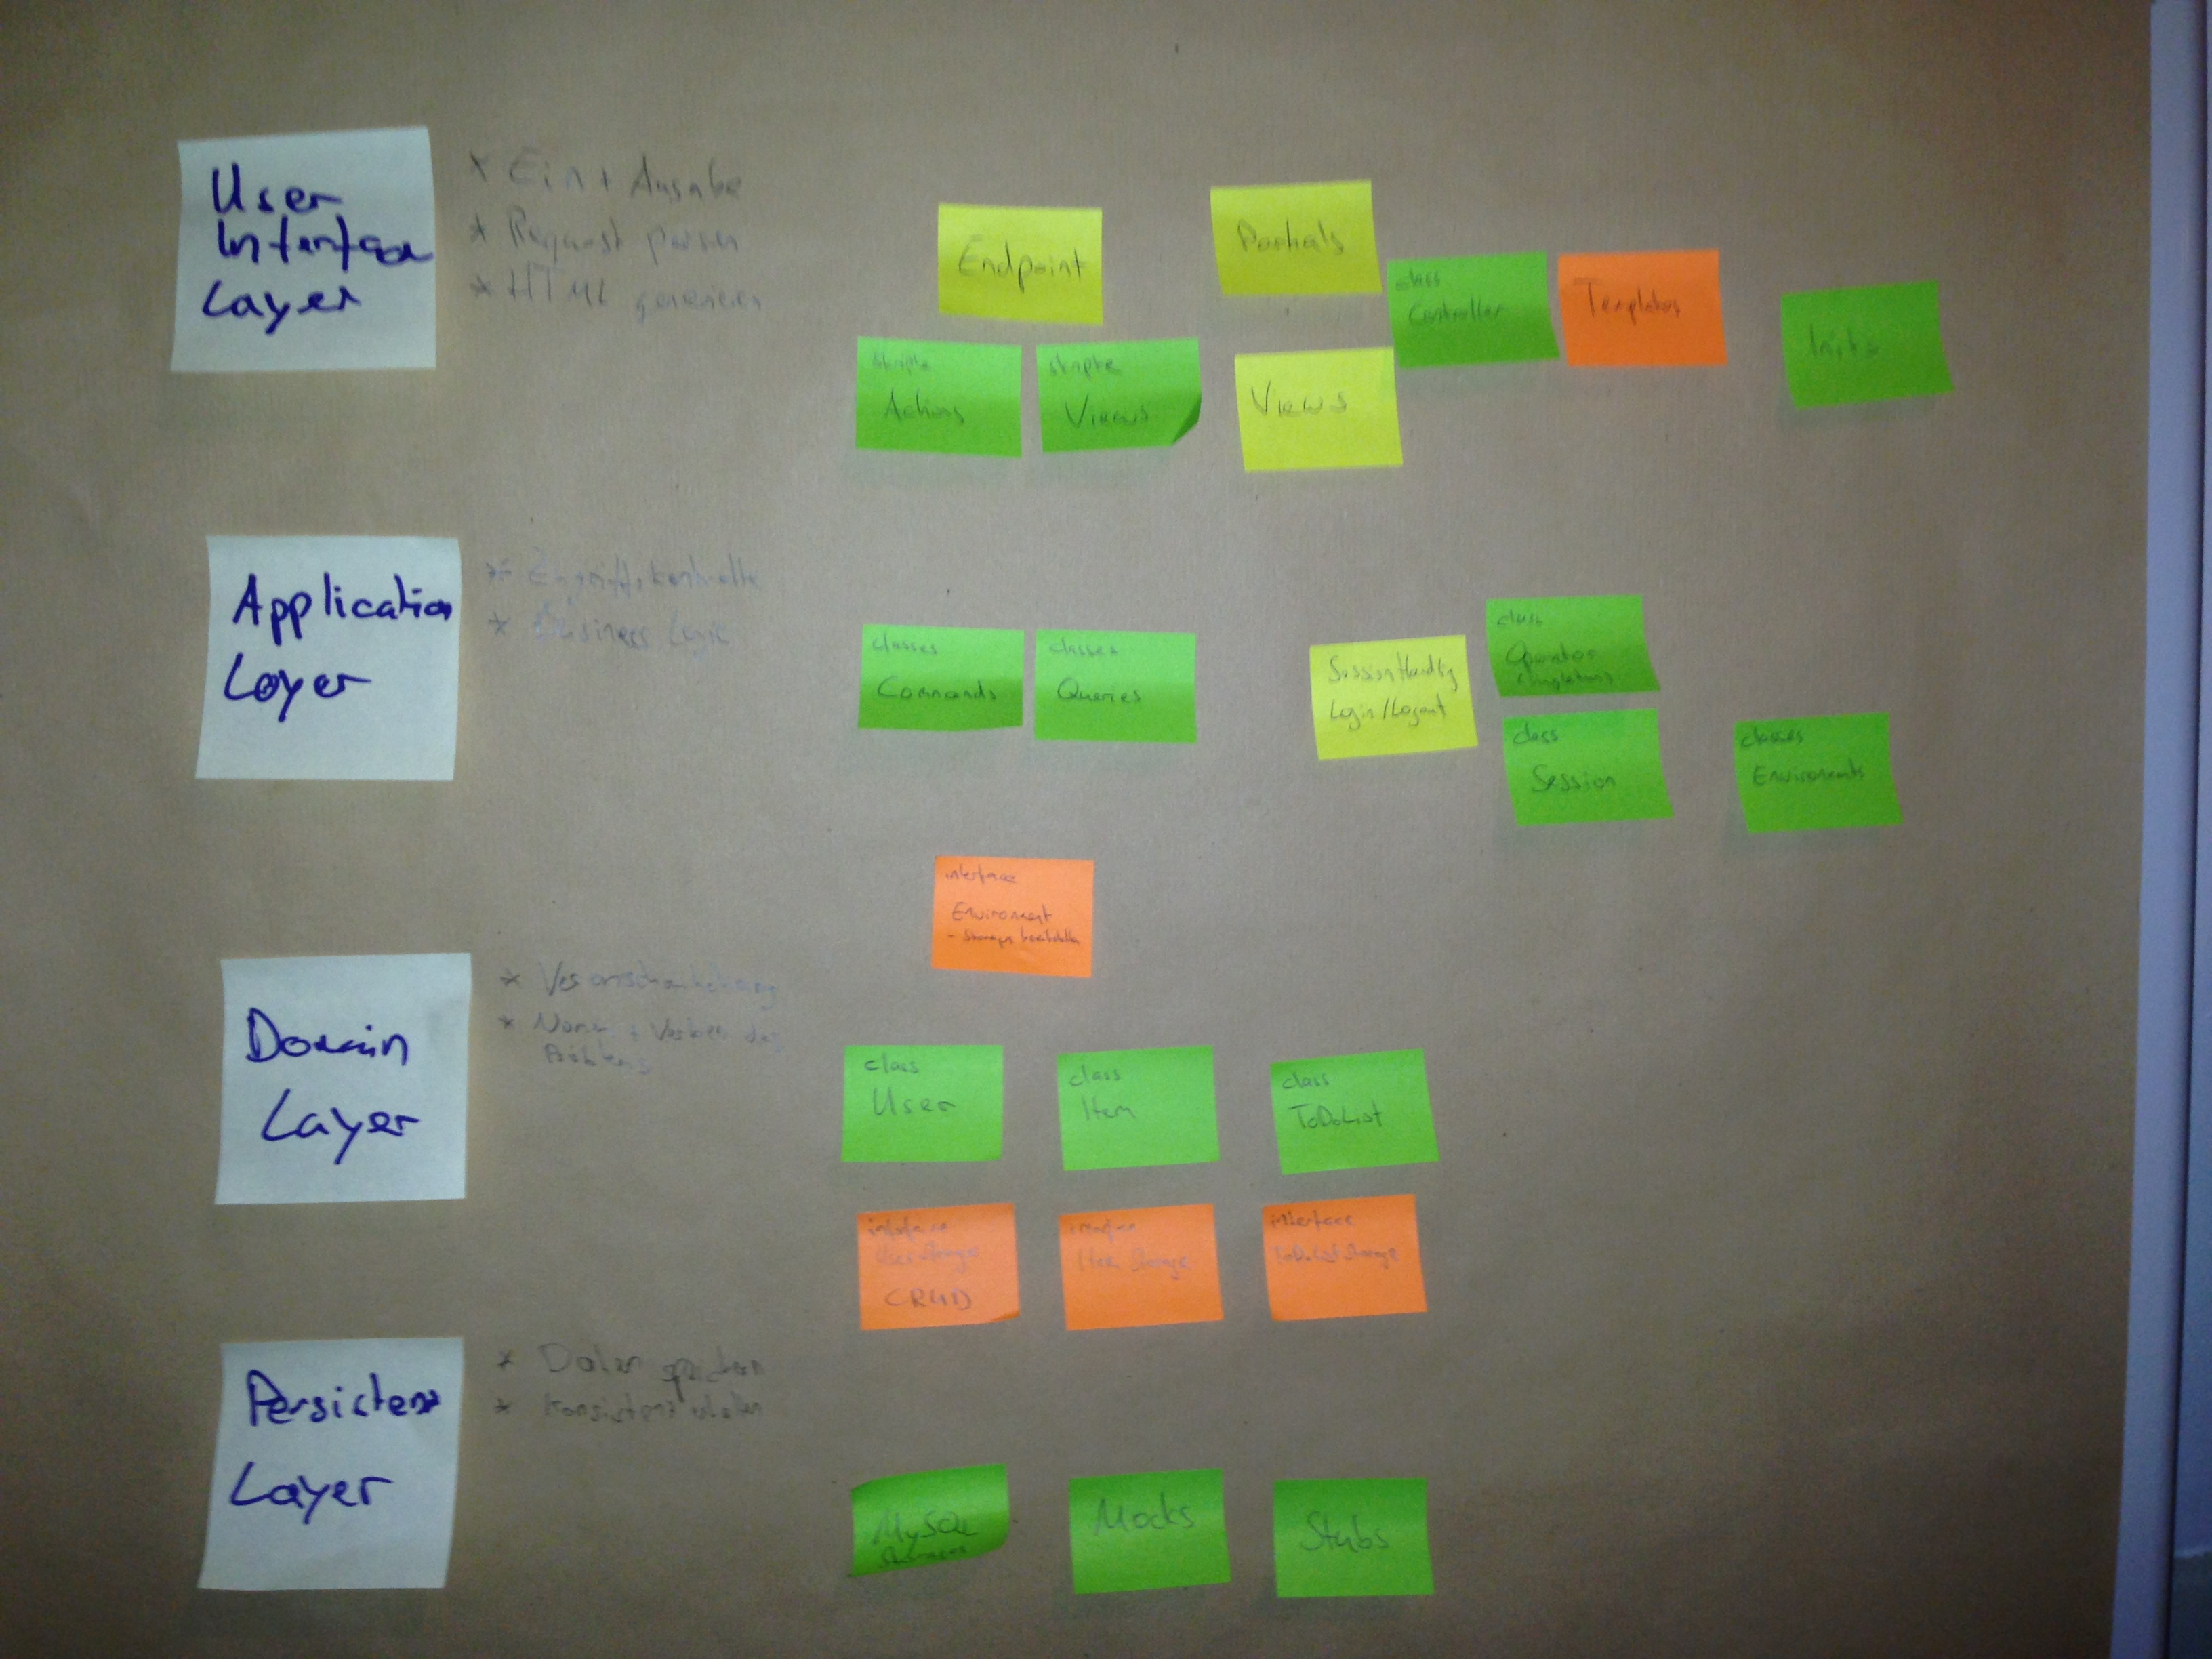 User
Interface
Layer
* Ein + Ausgabe
* Request parsen
* HTML generieren
Endpoint
Partials
class
Controller
Templates
Inits
Skripte
Actions
Skripte
Views
Views
Application
Layer
* Zugriffskontrolle
* Business Logic
classes
Commands
classes
Queries
Session Handling
Login/Logout
class
Operator
(Singleton)
class
Session
classes
Environments
interface
Environment
Domain
Layer
*
* + des
Problems
class
User
class
Item
class
ToDoList
interface
UserStorage
CRUD
interface
Item Storage
interface
ToDoListStorage
Persistenz
Layer
* Daten speichern
* Konsistenz
MySQL
Mocks
Stubs